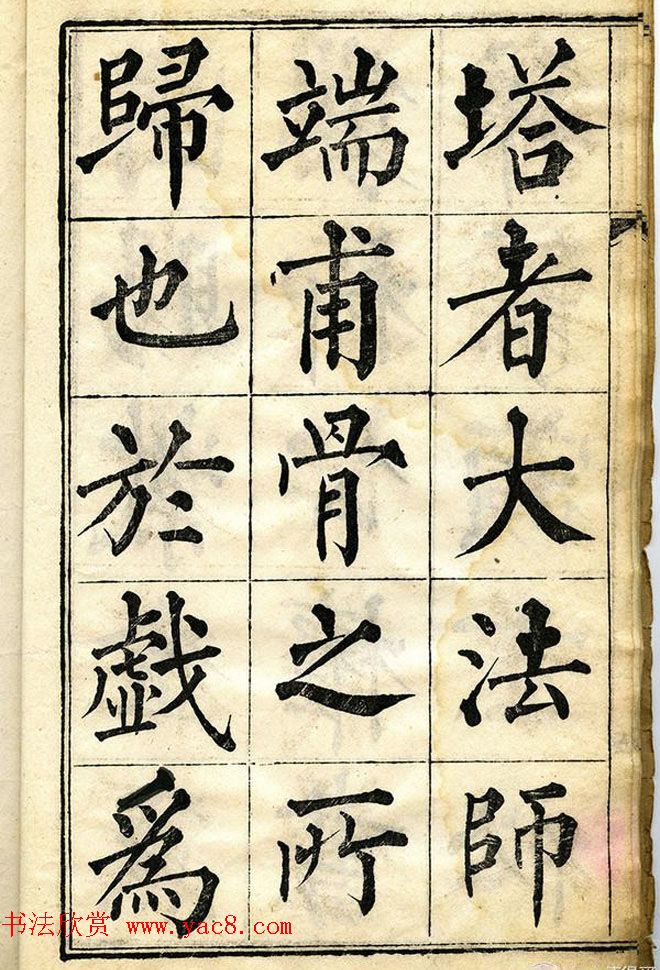 塔者大法師
端甫骨之所
歸也於戱為
书法欣赏 www.yac8.com